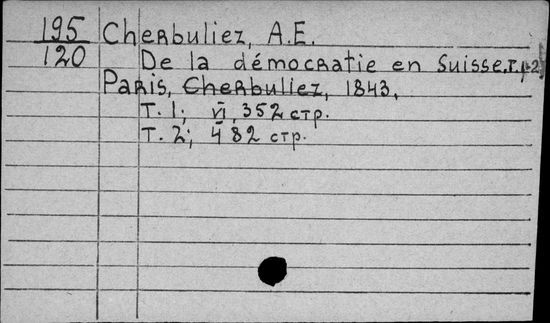 195 Cherbuliez, A.E.
120 De la démocratie en Suisse. T. 1-2
Paris, Cherbuliez, 1843.
T. 1; VI, 352 стр.
T. 2; 482 стр.